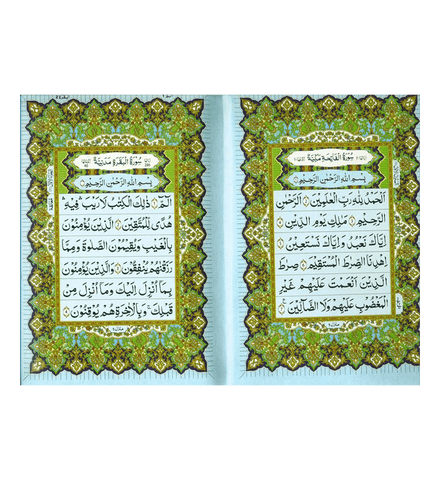 سُورَةُ الْفَاتِحَةِ مَكِّيَّةٌ
بِسْمِ اللهِ الرَّحْمٰنِ الرَّحِيْمِ
اَلْحَمْدُ لِلّٰهِ رَبِّ الْعٰلَمِيْنَ ۝١ الرَّحْمٰنِ
الرَّحِيْمِ ۝٢ مٰلِكِ يَوْمِ الدِّيْنِ ۝٣
اِيَّاكَ نَعْبُدُ وَاِيَّاكَ نَسْتَعِيْنُ ۝٤
اِهْدِنَا الصِّرَاطَ الْمُسْتَقِيْمَ ۝٥ صِرَاطَ
الَّذِيْنَ اَنْعَمْتَ عَلَيْهِمْ غَيْرِ
الْمَغْضُوْبِ عَلَيْهِمْ وَلَا الضَّآلِّيْنَ ۝٧
سُورَةُ الْبَقَرَةِ مَدَنِيَّةٌ
بِسْمِ اللهِ الرَّحْمٰنِ الرَّحِيْمِ
الٓمّٓ ۝١ ذٰلِكَ الْكِتٰبُ لَا رَيْبَ فِيْهِ
هُدًى لِّلْمُتَّقِيْنَ ۝٢ الَّذِيْنَ يُؤْمِنُوْنَ
بِالْغَيْبِ وَيُقِيْمُوْنَ الصَّلٰوةَ وَمِمَّا
رَزَقْنٰهُمْ يُنْفِقُوْنَ ۝٣ وَالَّذِيْنَ يُؤْمِنُوْنَ
بِمَآ اُنْزِلَ اِلَيْكَ وَمَآ اُنْزِلَ مِنْ
قَبْلِكَ وَبِالْاٰخِرَةِ هُمْ يُوْقِنُوْنَ ۝٤